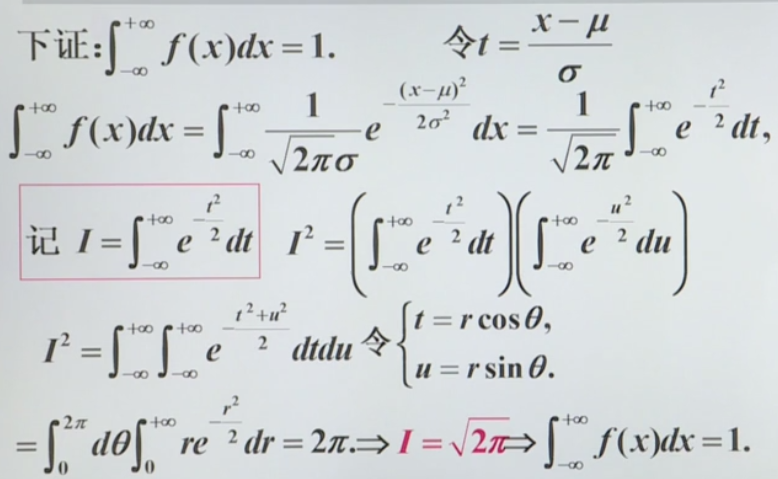 下证:∫_{-∞}^{+∞} f(x)dx = 1. 令 t = (x-μ)/σ
∫_{-∞}^{+∞} f(x)dx = ∫_{-∞}^{+∞} \frac{1}{\sqrt{2π}σ} e^{-\frac{(x-μ)^2}{2σ^2}} dx = \frac{1}{\sqrt{2π}} ∫_{-∞}^{+∞} e^{-\frac{t^2}{2}} dt,
记 I = ∫_{-∞}^{+∞} e^{-\frac{t^2}{2}} dt I^2 = (∫_{-∞}^{+∞} e^{-\frac{t^2}{2}} dt)(∫_{-∞}^{+∞} e^{-\frac{u^2}{2}} du)
I^2 = ∫_{-∞}^{+∞} ∫_{-∞}^{+∞} e^{-\frac{t^2+u^2}{2}} dtdu 令 { t = r cos θ, u = r sin θ.
= ∫_0^{2π} dθ ∫_0^{+∞} re^{-\frac{r^2}{2}} dr = 2π. ⇒ I = \sqrt{2π} ⇒ ∫_{-∞}^{+∞} f(x)dx = 1.